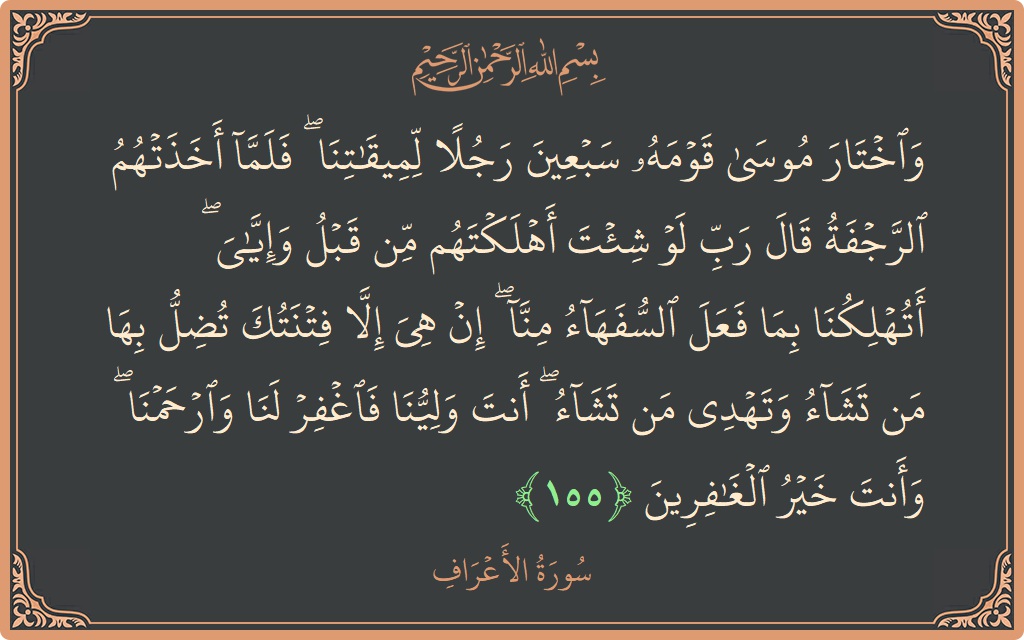 بِسْمِ اللَّهِ الرَّحْمَٰنِ الرَّحِيمِ
وَٱخْتَارَ مُوسَىٰ قَوْمَهُۥ سَبْعِينَ رَجُلًا لِّمِيقَـٰتِنَا ۖ فَلَمَّآ أَخَذَتْهُمُ
ٱلرَّجْفَةُ قَالَ رَبِّ لَوْ شِئْتَ أَهْلَكْتَهُم مِّن قَبْلُ وَإِيَّـٰىَ ۖ
أَتُهْلِكُنَا بِمَا فَعَلَ ٱلسُّفَهَآءُ مِنَّآ ۖ إِنْ هِىَ إِلَّا فِتْنَتُكَ تُضِلُّ بِهَا
مَن تَشَآءُ وَتَهْدِى مَن تَشَآءُ ۖ أَنتَ وَلِيُّنَا فَٱغْفِرْ لَنَا وَٱرْحَمْنَا ۖ
وَأَنتَ خَيْرُ ٱلْغَـٰفِرِينَ ﴿١٥٥﴾
سُورَةُ الأَعْرَافِ